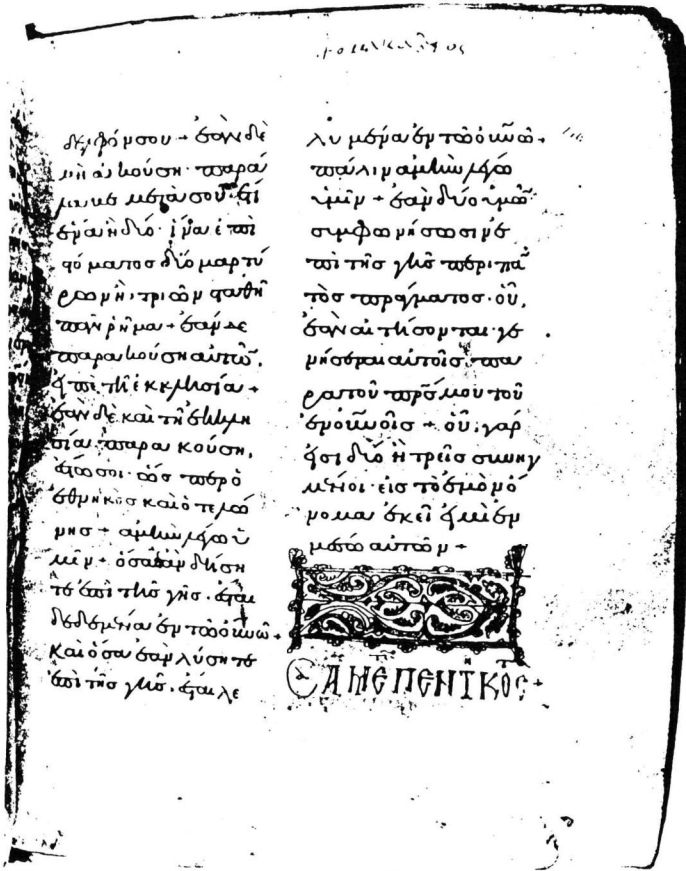 δελφόν σου + ἐὰν δὲ
μὴ ἀκούση· παρά
λαβε μετὰ σοῦ ἔτι
ἕνα ἢ δύο· ἵνα ἐπὶ
στόματος δύο μαρτύ
ρων ἢ, τριῶν σταθῆ
πᾶν ρῆμα + ἐὰν δὲ
παρακούση αὐτῶν,
εἰπὲ τῆ ἐκκλησία +
ἐὰν δὲ καὶ τῆ ἐκκλη
σίας παρακούση,
ἔστω σοι· ὡς περ ὁ
ἐθνηκὸς καὶ ὁ τελώ
νης + ἀμὴν λέγω ὑ
μῖν + ὅσα ἐὰν δήση
τε ἐπὶ τῆς γῆς. ἔσται
δεδεμένα ἐν τῶ οὐνῶ +
καὶ ὅσα ἐὰν λύσητε
ἐπὶ τῆς γῆς. ἔσται λε
λυμένα ἐν τῶ οὐνῶ +
πάλιν ἀμὴν λέγω
ὑμῖν + ἐὰν δύο ὑμῶν
συμφωνήσωσιν ἐ
πὶ τῆς γῆς περὶ παν
τὸς πράγματος· οὗ,
ἐὰν αἰτήσονται· γε
νήσεται αὐτοῖς παρὰ
τοῦ πρσ μου τοῦ
ἐν οὐνοῖς + οὗ, γάρ
εἰσι δύο ἢ τρεῖς συνηγ
μένοι· εἰς τὸ ἐμὸν ὄ
νομα ἐκεῖ εἰμὶ ἐν
μέσω αὐτῶν +
ΕΠΕΝΤΙΚΟΣ +